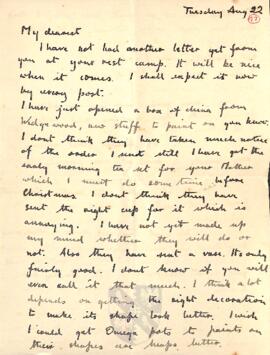 Tuesday Aug 22
My dearest
I have not had another letter yet from
you at your rest camp. It will be nice
when it comes. I shall expect it now
by every post.
I have just opened a box of china from
Wedgwood, new stuff to paint on you know.
I dont think they have taken much notice
of the order I sent still I have got the
early morning tea set for your Mother
which I must do some time before
Christmas. I dont think they have
sent the right cup for it which is
annoying. I have not yet made up
my mind whether they will do or
not. Also they have sent a vase. Its only
fairly good. I dont know if you will
even call it that much. I think a lot
depends on getting the right decoration
to make its shape look better. I wish
I could get Omega pots to paint on
their shapes are heaps better.